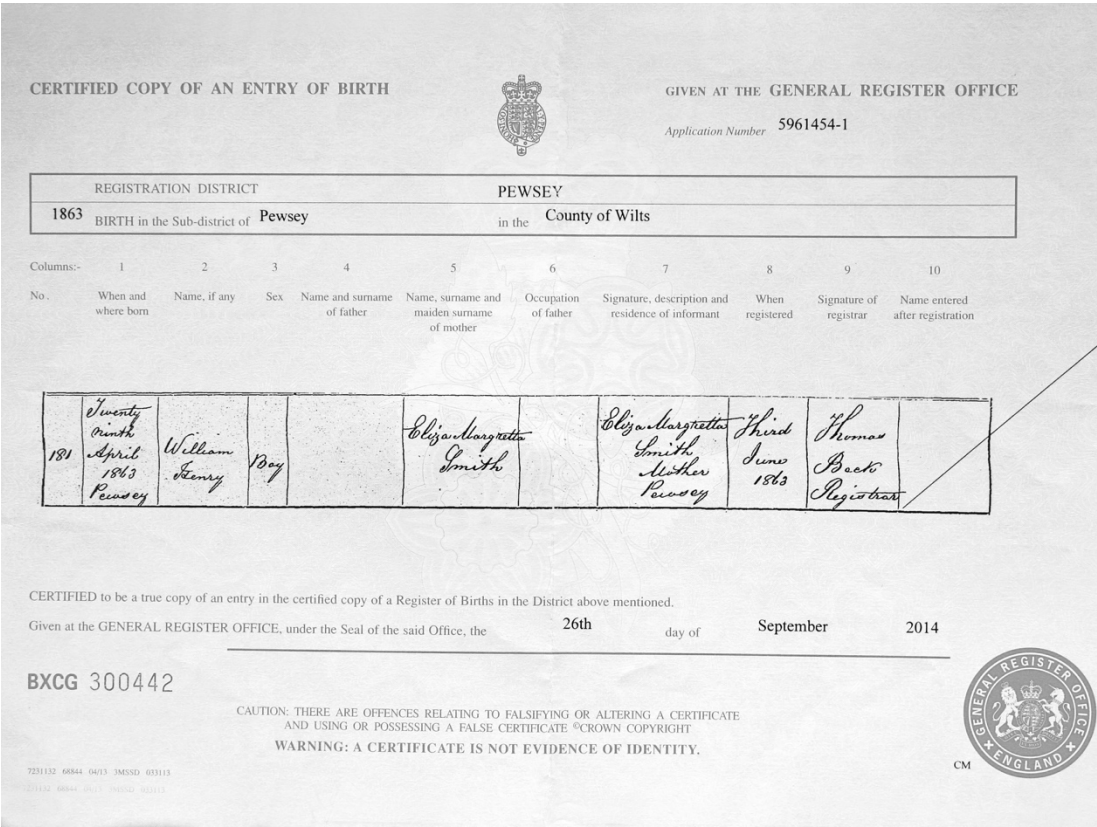 CERTIFIED COPY OF AN ENTRY OF BIRTH
GIVEN AT THE GENERAL REGISTER OFFICE
Application Number 5961454-1
REGISTRATION DISTRICT PEWSEY
1863 BIRTH in the Sub-district of Pewsey in the County of Wilts
Columns:- 1 2 3 4 5 6 7 8 9 10
No. When and where born
Name, if any
Sex
Name and surname of father
Name, surname and maiden surname of mother
Occupation of father
Signature, description and residence of informant
When registered
Signature of registrar
Name entered after registration
181
Twenty
ninth
April
1863
Pewsey
William
Henry
Boy
Eliza Margretta
Smith
Eliza Margretta
Smith
Mother
Pewsey
Third
June
1863
Thomas
Beck
Registrar
CERTIFIED to be a true copy of an entry in the certified copy of a Register of Births in the District above mentioned.
Given at the GENERAL REGISTER OFFICE, under the Seal of the said Office, the 26th day of September 2014
BXCG 300442
CAUTION: THERE ARE OFFENCES RELATING TO FALSIFYING OR ALTERING A CERTIFICATE
AND USING OR POSSESSING A FALSE CERTIFICATE ©CROWN COPYRIGHT
WARNING: A CERTIFICATE IS NOT EVIDENCE OF IDENTITY.
GENERAL REGISTER OFFICE
ENGLAND
CM
7251132 68844 04/13 3MSSD 033115